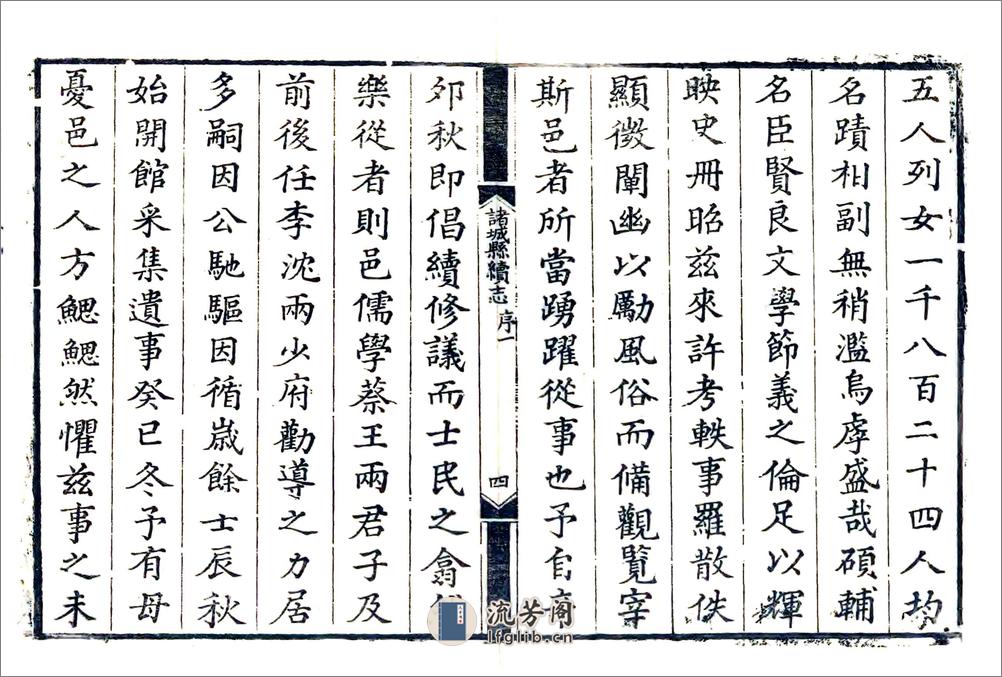 五人列女一千八百二十四人均
名蹟相副無稍濫烏虖盛哉碩輔
名臣賢良文學節義之倫足以輝
映史冊昭茲來許考軼事羅散佚
顯微闡幽以勵風俗而備觀覽宰
斯邑者所當踴躍從事也予自
諸城縣續志
序一
四
夘秋即倡續修議而士民之翕
樂從者則邑儒學蔡王兩君子及
前後任李沈兩少府勸導之力居
多嗣因公馳驅因循嵗餘士辰秋
始開館采集遺事癸巳冬予有母
憂邑之人方鰓鰓然懼茲事之未
流芳阁
lfglib.cn